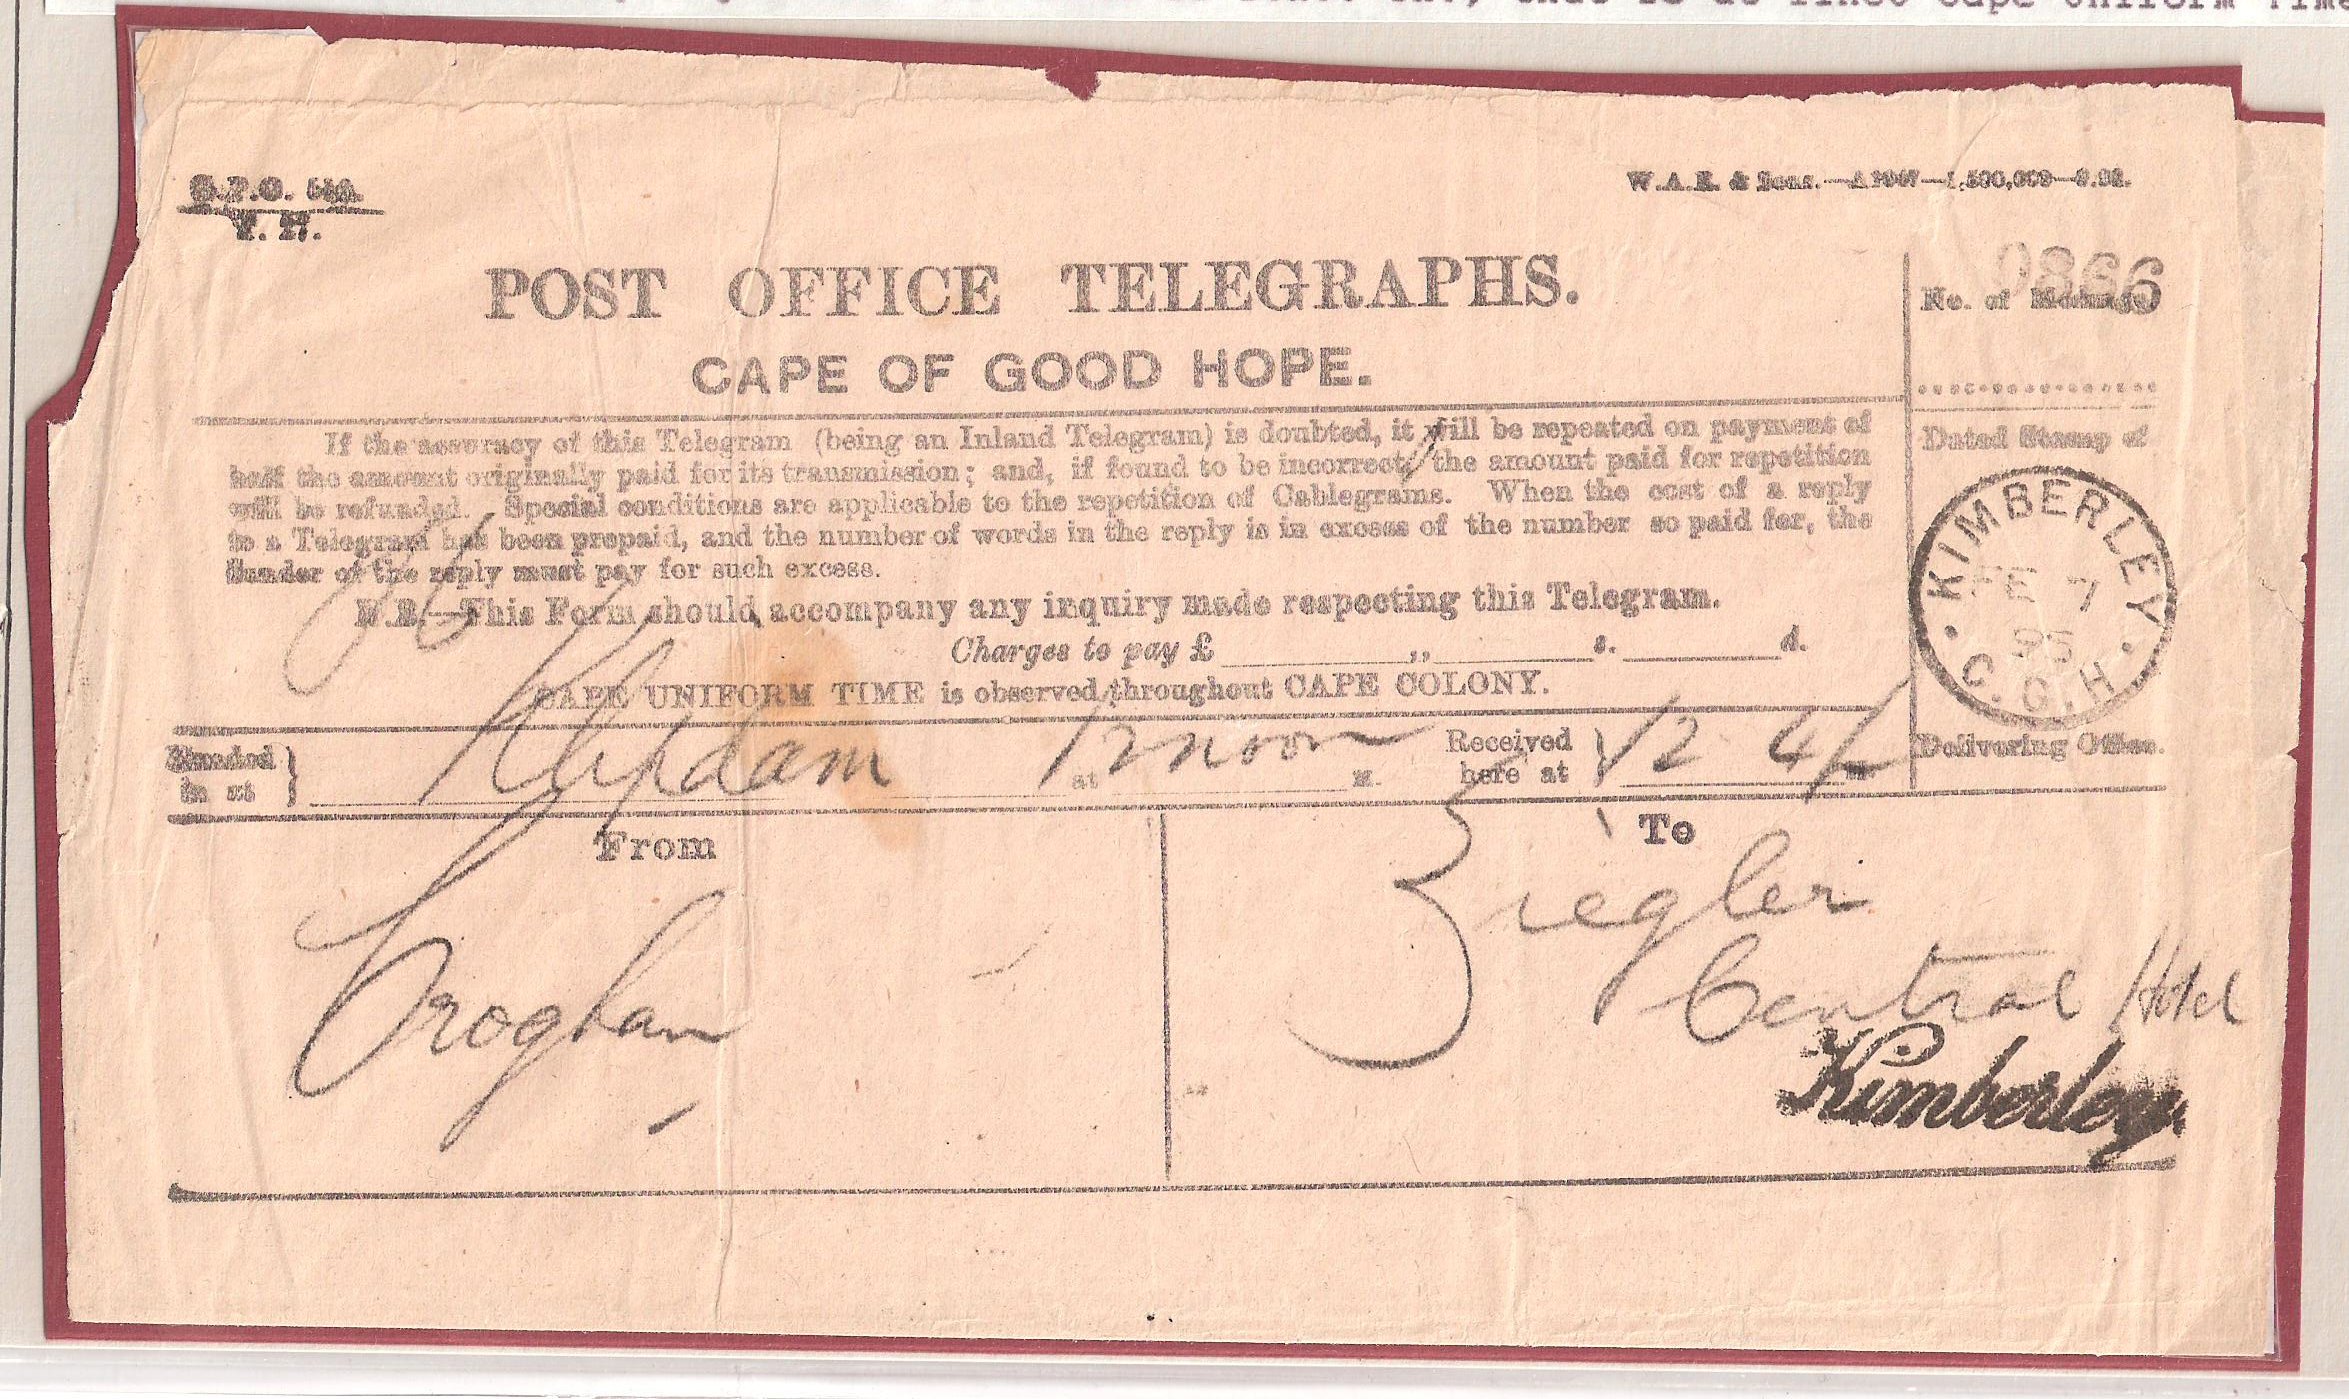 Cape Uniform Time
W.A.R. & Sons.
POST OFFICE TELEGRAPHS.
CAPE OF GOOD HOPE.
9866
No. of Message
If the accuracy of this Telegram (being an Inland Telegram) is doubted, it will be repeated on payment of
half the amount originally paid for its transmission; and, if found to be incorrect, the amount paid for repetition
will be refunded. Special conditions are applicable to the repetition of Cablegrams. When the cost of a reply
to a Telegram has been prepaid, and the number of words in the reply is in excess of the number so paid for, the
Sender of the reply must pay for such excess.
N.B.—This Form should accompany any inquiry made respecting this Telegram.
Charges to pay £ ,, s. d.
CAPE UNIFORM TIME is observed throughout CAPE COLONY.
Dated Stamp of
KIMBERLEY
FE 7
95
C.G.H
Delivering Office.
Handed in at } Klipdam at 12 noon M. Received here at } 12 4 M
From
Croghan
To
Ziegler
Central Hotel
Kimberley